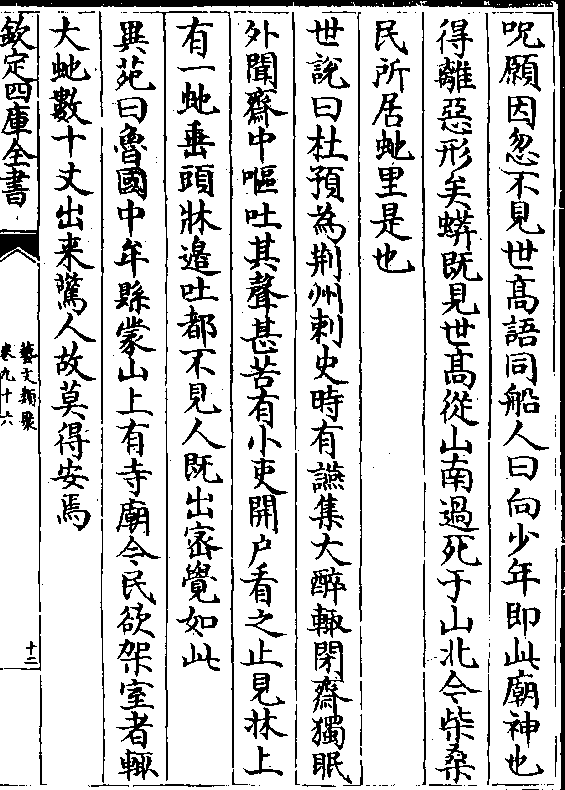 呪願因忽不見世髙語同船人曰向少年即此廟神也
得離惡形矣蟒既見世髙從山南過死于山北令柴桑
民所居虵里是也
世說曰杜預為荆州刺史時有讌集大醉輙閉齋獨眠
外聞齋中嘔吐其聲甚苦有小吏開户看之止見牀上
有一虵垂頭牀邉吐都不見人既出宻覺如此
異苑曰魯國中牟縣蒙山上有寺廟令民欲架室者輙
大虵數十丈出来驚人故莫得安焉
欽定四庫全書
藝文類聚
卷九十六
十二